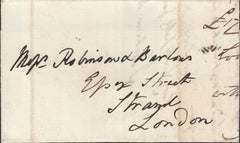 £12
Messrs. Robinson & Barlow
Essex Street
Strand
London